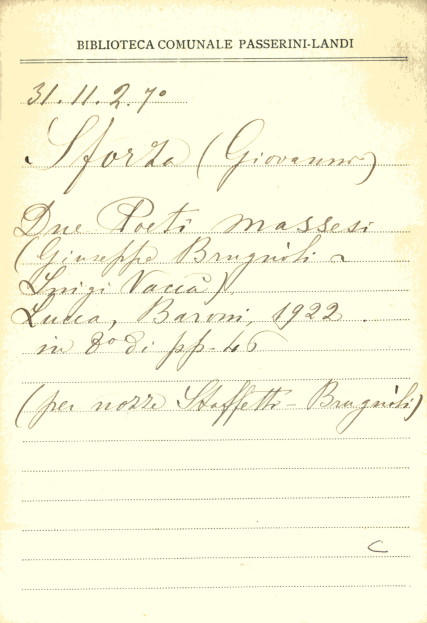 BIBLIOTECA COMUNALE PASSERINI-LANDI
31.11.2.7º
Sforza (Giovanni)
Due Poeti massesi
(Giuseppe Brugnòli -
Luigi Vaccà)
Lucca, Baroni, 1922.
in 8º di pp. 46
(per nozze Staffetti - Brugnòli)
C